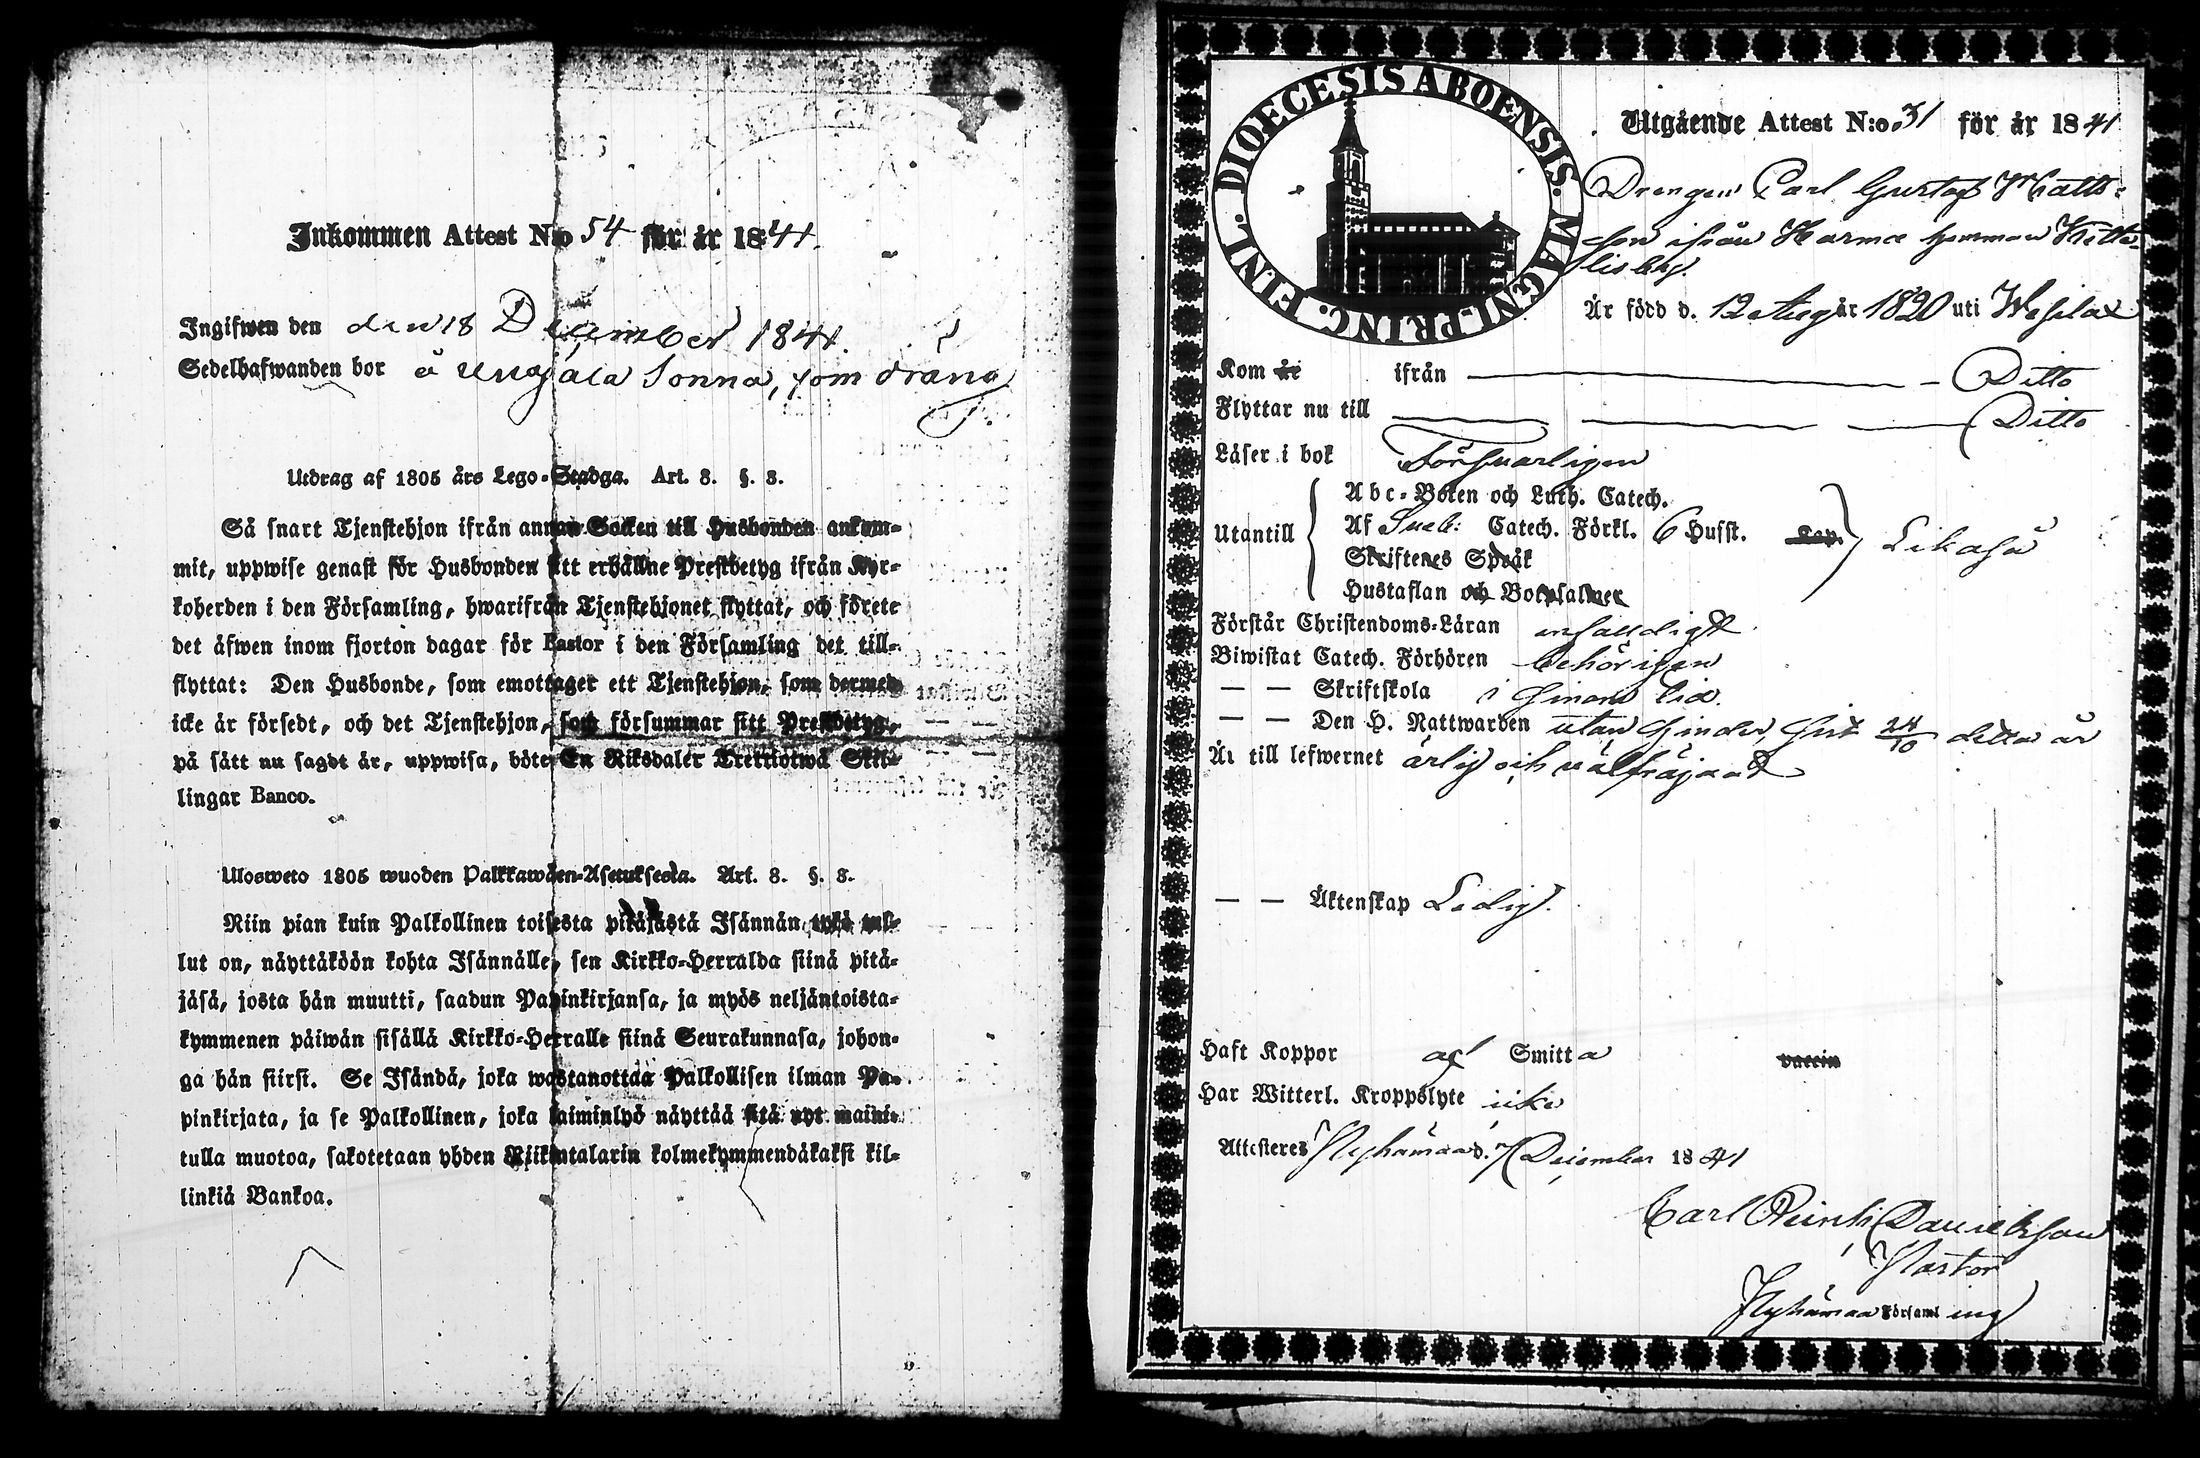 Inkommen Attest N:o 54 för år 1841.
Ingifwen den den 18 December 1841.
Sedelhafwanden bor å Unajala Sonna, som dräng
Utdrag af 1805 års Lego-Stadga. Art. 8. §. 3.
Så snart Tjenstehjon ifrån annan Socken till Husbonden ankom-
mit, uppwise genast för Husbonden sitt erhållne Prestbetyg ifrån Kyr-
koherden i den Församling, hwarifrån Tjenstehjonet flyttat, och förete
det äfwen inom fjorton dagar för Pastor i den Församling det till-
flyttat: Den Husbonde, som emottager ett Tjenstehjon, som dermed
icke är försedt, och det Tjenstehjon, som försummar sitt Prestbetyg,
på sätt nu sagdt är, uppwisa, böte En Riksdaler Trettiotwå Skil-
lingar Banco.
Ulosweto 1805 wuoden Palkkawäen-Asetuksesta. Art. 8. §. 3.
Niin pian kuin Palkollinen toisesta pitäjästä Isännän tykö tul-
lut on, näyttäköön kohta Isännälle, sen Kirkko-Herralda siinä pitä-
jäsä, josta hän muutti, saadun Papinkirjansa, ja myös neljäntoista-
kymmenen päiwän sisällä Kirkko-Herralle siinä Seurakunnasa, johon-
ga hän siirsi. Se Isändä, joka wastanottaa Palkollisen ilman Pa-
pinkirjata, ja se Palkollinen, joka laiminlyö näyttää sitä nyt maini-
tulla muotoa, sakotetaan yhden Riikintalarin kolmekymmendäkaksi kil-
linkiä Bankoa.
DIOECESIS ABOENSIS. MAGNI. PRINC. FINL.
Utgående Attest N:o 31 för år 1841
Drengen Carl Gustaf Matts-
son ifrån Harma hemman
lis by.
Är född d. 12 Aug år 1820 uti
Kom år ifrån — Ditto
Flyttar nu till — Ditto
Läser i bok Försvarligen
Utantill
Abc-Boken och Luth. Catech.
Af Sveb: Catech. Förkl. 6 Hufst. Cap. Likaså
Skriftenes Språk
Hustaflan och Botpsalmer
Förstår Christendoms-Läran enfaldigt
Biwistat Catech. Förhören behörigen
— — Skriftskola i sinom tid.
— — Den H. Nattwarden utan hinder, sist 24/10 detta år
Är till lefwernet ärlig och välfräjdad
— — Äktenskap Ledig.
Haft Koppor af Smitta vaccin
Har Witterl. Kroppslyte icke
Attesteres Nykämaa d. 7 December 1841
Carl Reinh. Danielsson
Pastor
Församling